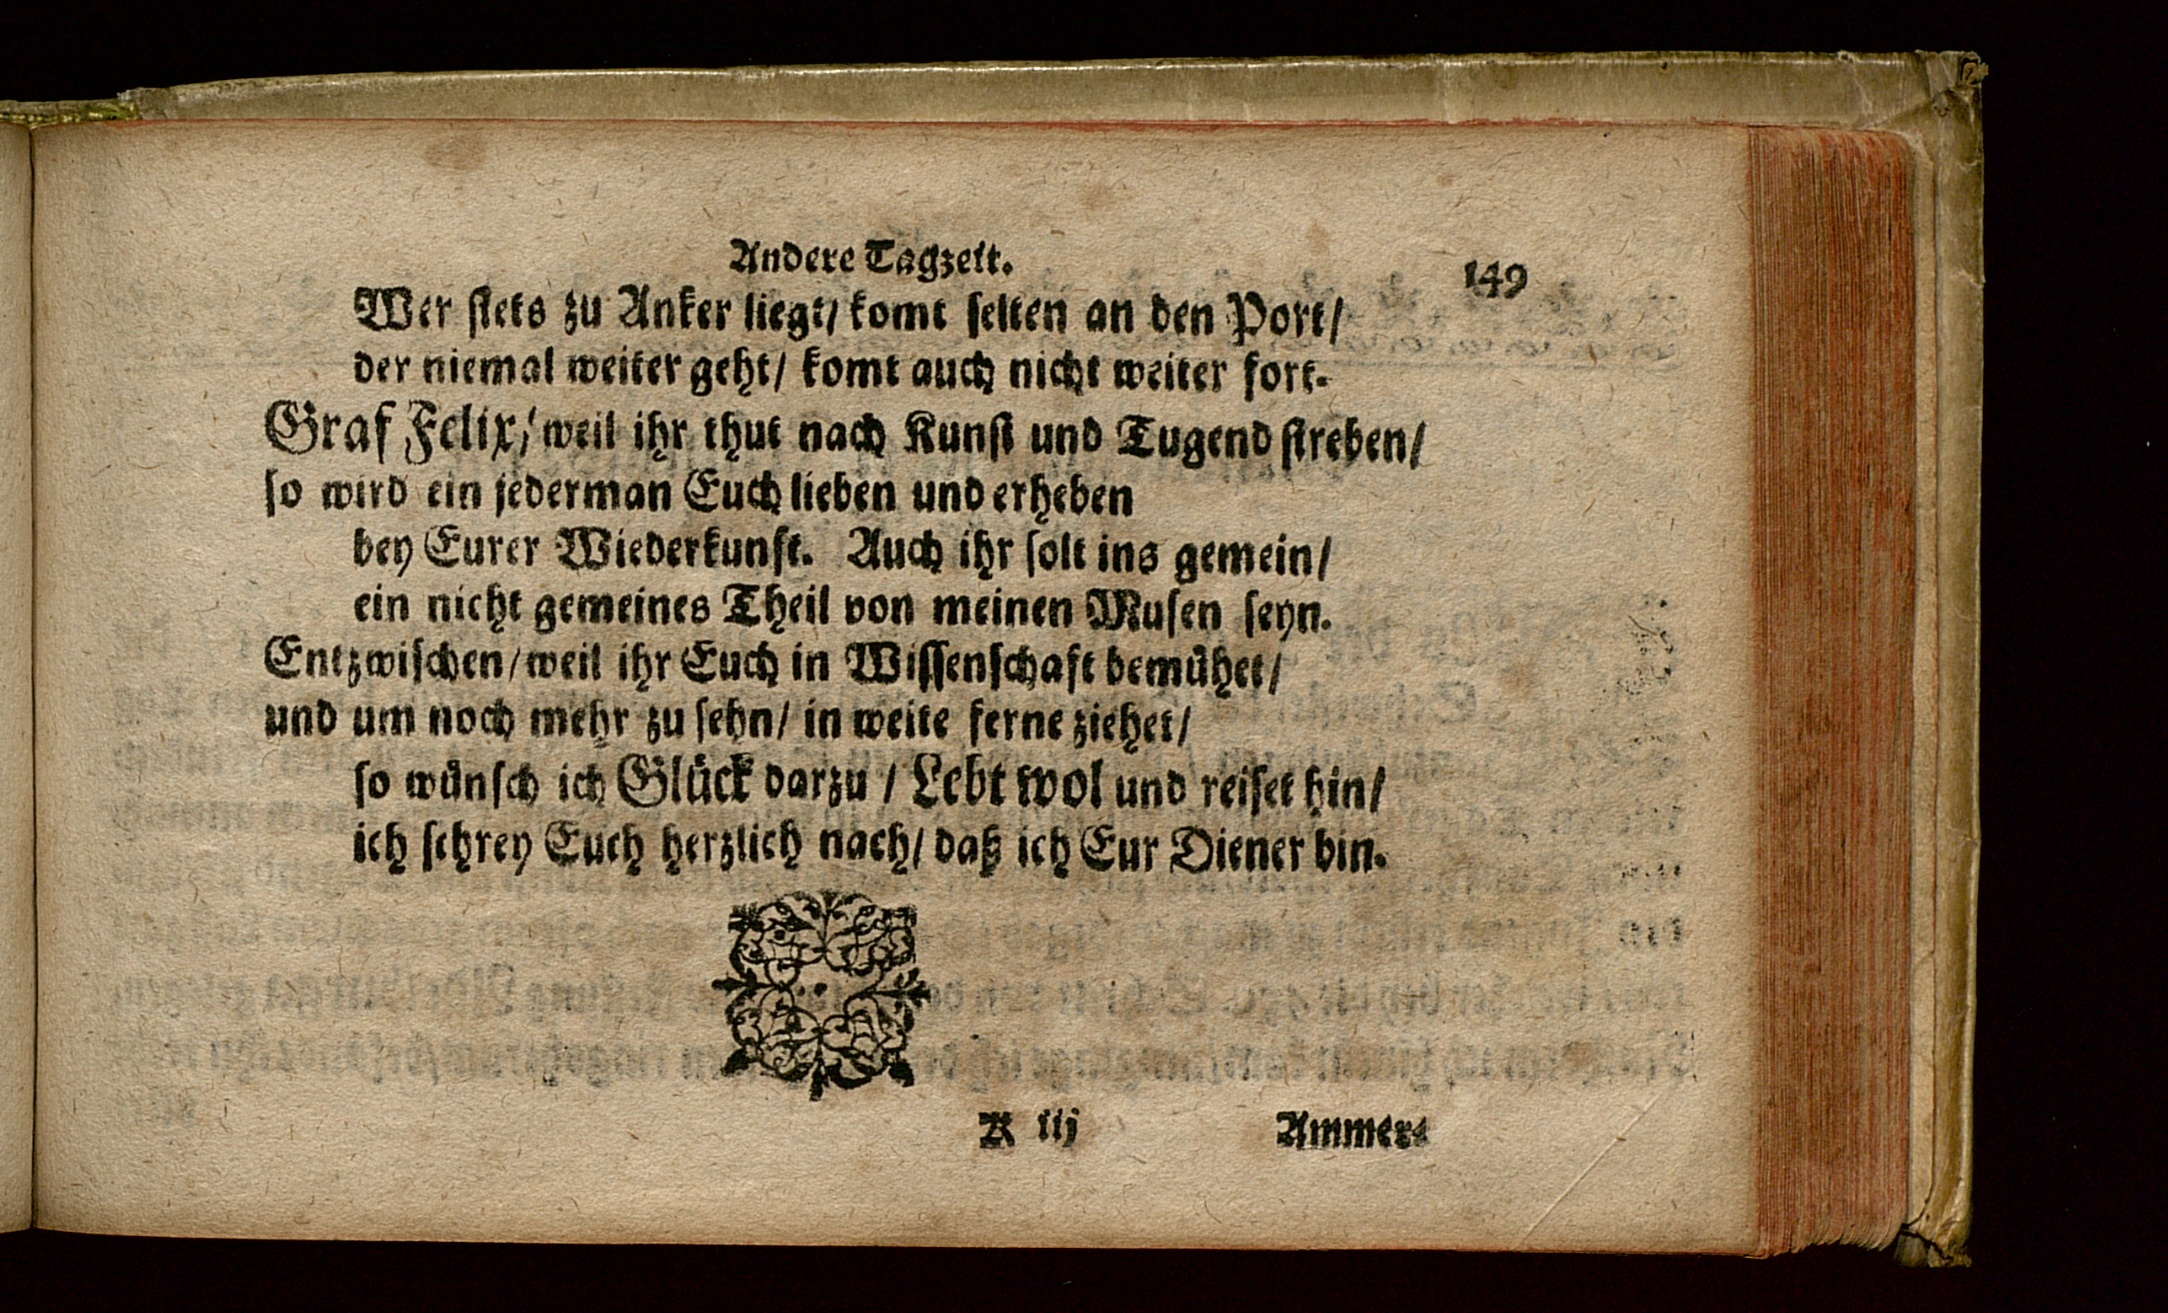 Andere Tagzeit.
149
Wer stets zu Anker liegt/ komt selten an den Port/
der niemal weiter geht/ komt auch nicht weiter fort.
Graf Felix/ weil ihr thut nach Kunst und Tugend streben/
so wird ein jederman Euch lieben und erheben
bey Eurer Wiederkunft. Auch ihr solt ins gemein/
ein nicht gemeines Theil von meinen Musen seyn.
Entzwischen/ weil ihr Euch in Wissenschaft bemühet/
und um noch mehr zu sehn/ in weite ferne ziehet/
so wünsch ich Glück darzu / Lebt wol und reiset hin/
ich schrey Euch herzlich nach/ daß ich Eur Diener bin.
K iij
Ammer⸗